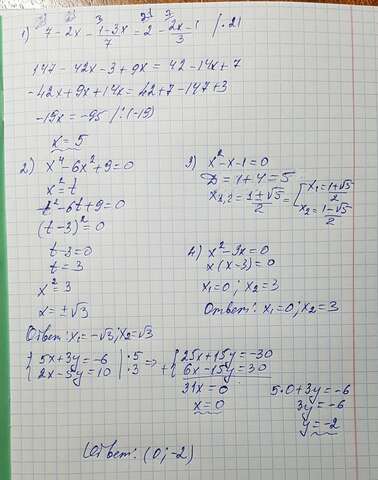 1) 7 - 2x - (1-3x)/7 = 2 - (2x-1)/3 | · 21
147 - 42x - 3 + 9x = 42 - 14x + 7
-42x + 9x + 14x = 42 + 7 - 147 + 3
-19x = -95 | : (-19)
x = 5
2) x⁴ - 6x² + 9 = 0
x² = t
t² - 6t + 9 = 0
(t - 3)² = 0
t - 3 = 0
t = 3
x² = 3
x = ±√3
Ответ: x₁ = -√3; x₂ = √3
3) x² - x - 1 = 0
D = 1 + 4 = 5
x₁,₂ = (1 ± √5)/2 = [ x₁ = (1+√5)/2
x₂ = (1-√5)/2
4) x² - 3x = 0
x(x - 3) = 0
x₁ = 0; x₂ = 3
Ответ: x₁ = 0; x₂ = 3
{ 5x + 3y = -6 | · 5 ⇒ { 25x + 15y = -30
{ 2x - 5y = 10 | · 3 + { 6x - 15y = 30
31x = 0
x = 0
5 · 0 + 3y = -6
3y = -6
y = -2
Ответ: (0; -2)